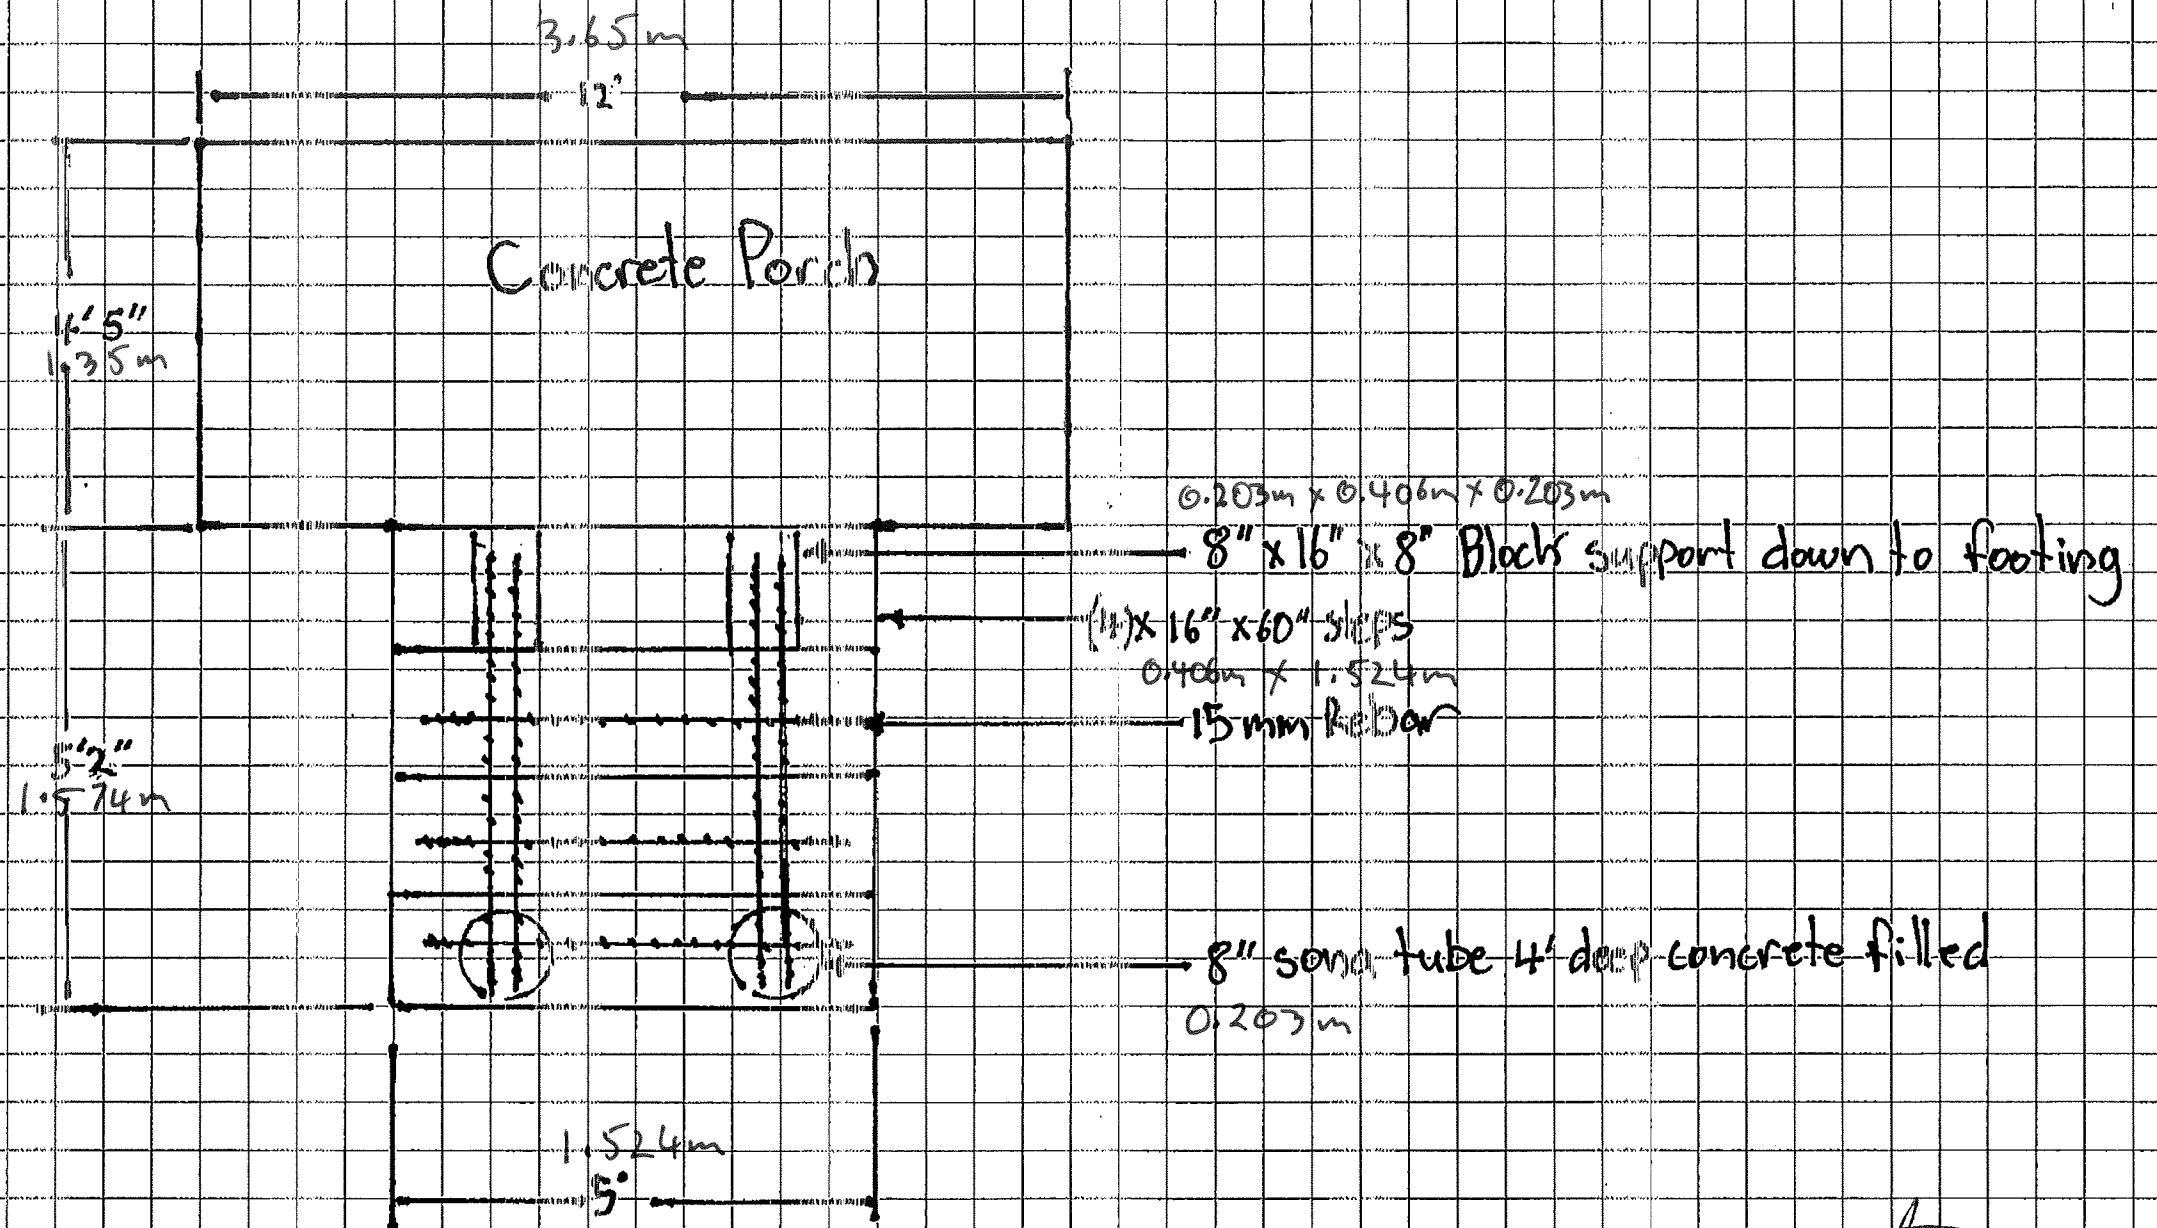 3.65m
12'
Concrete Porch
4'5"
1.35m
0.203m x 0.406m x 0.203m
8" x 16" x 8" Block support down to footing
(4) x 16" x 60" steps
0.406m x 1.524m
15mm Rebar
5'2"
1.574m
8" sona tube 4' deep concrete filled
0.203m
1.524m
5'